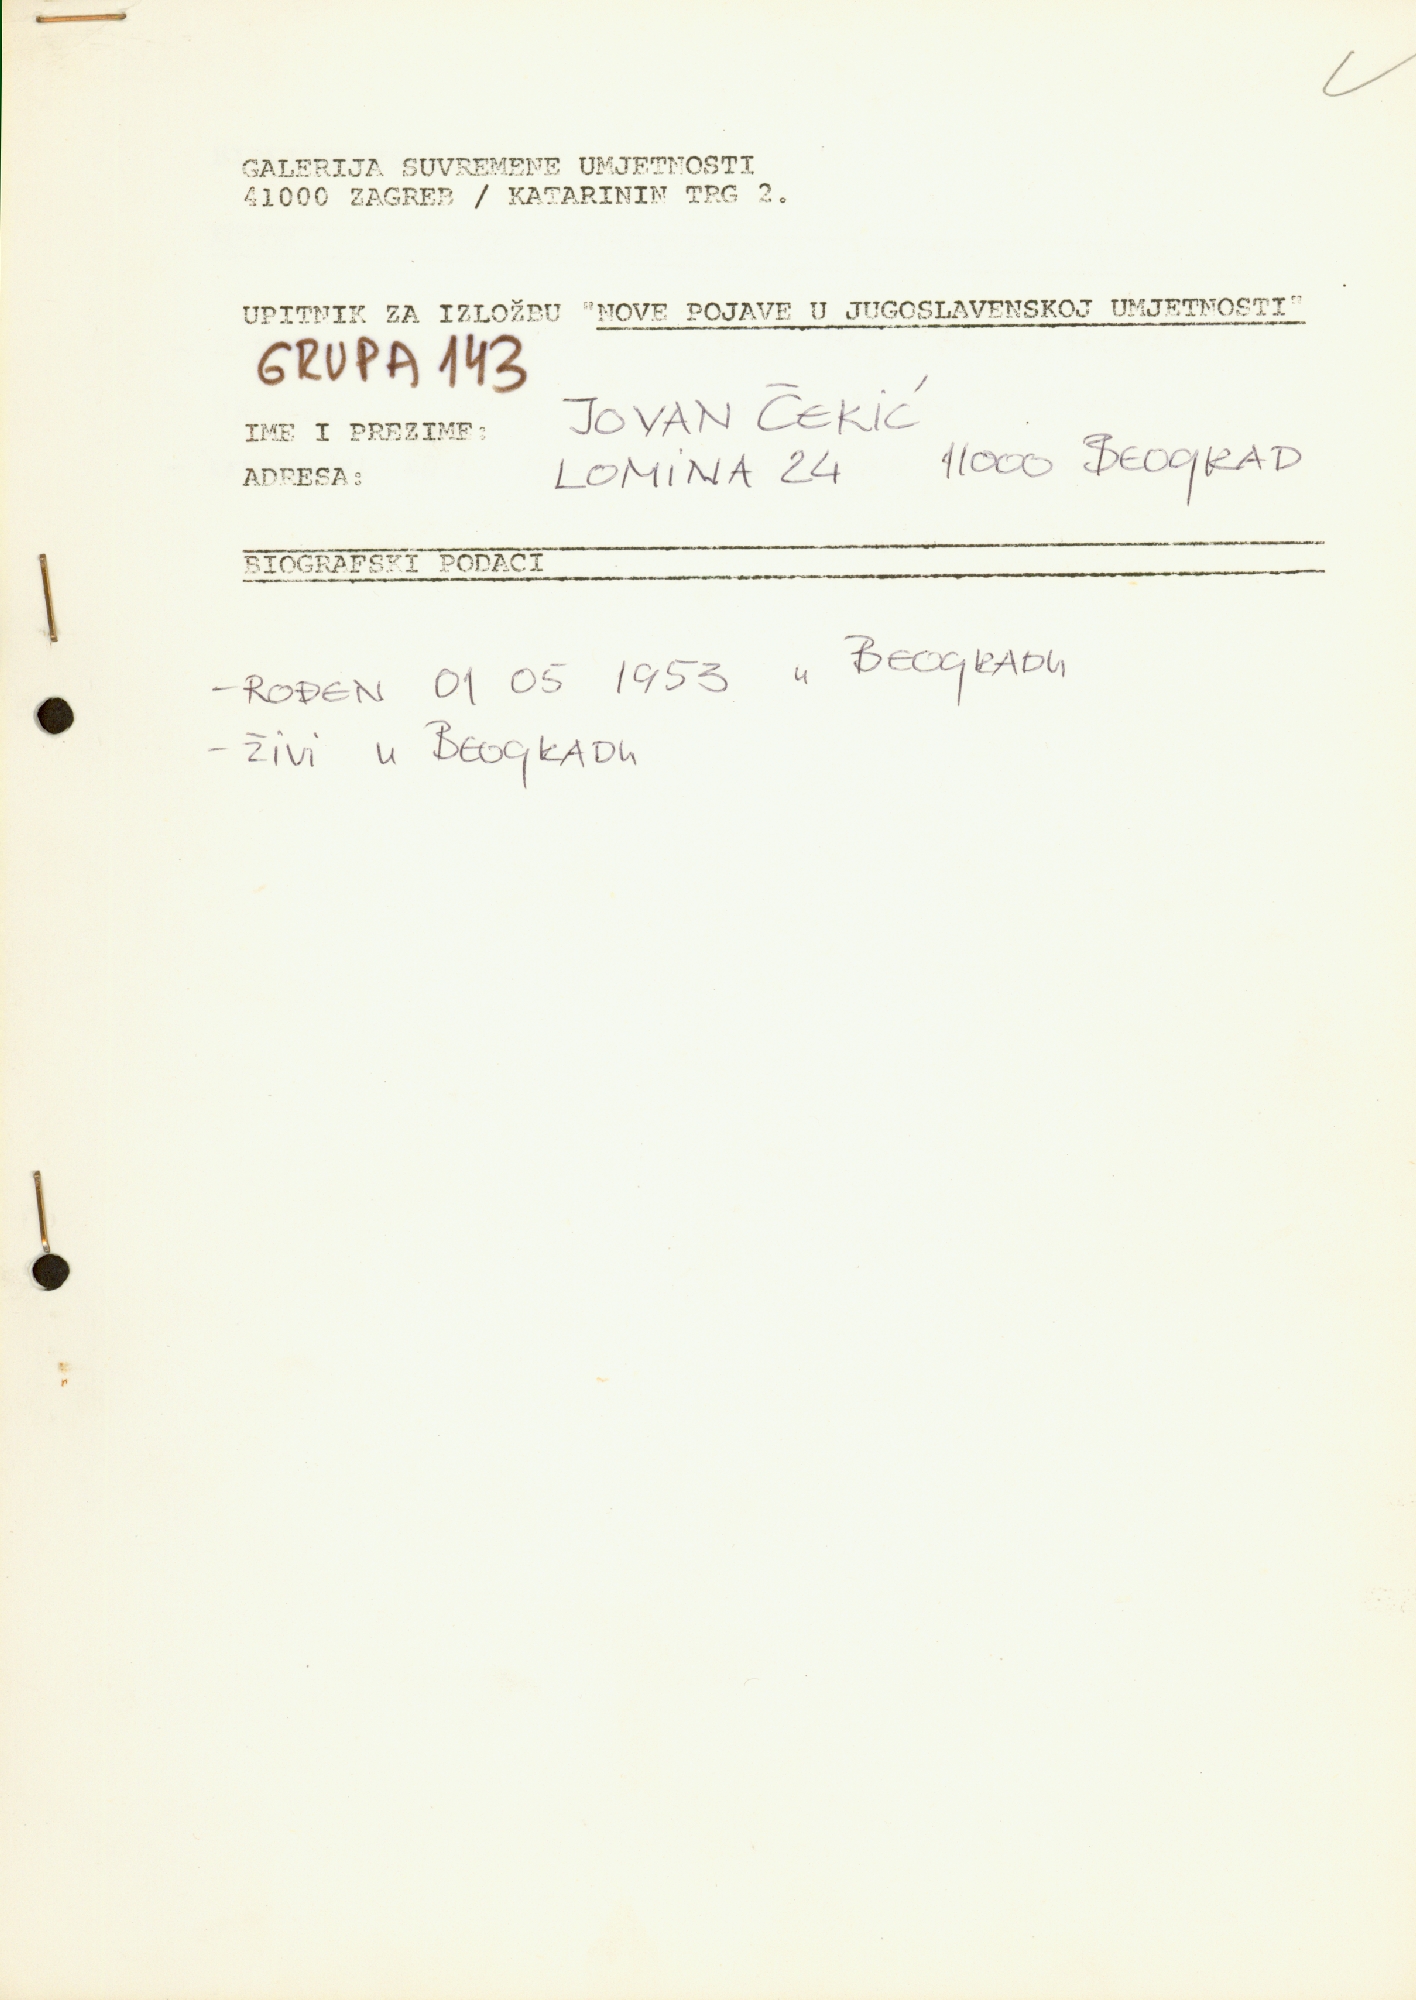 GALERIJA SUVREMENE UMJETNOSTI
41000 ZAGREB / KATARININ TRG 2.
UPITNIK ZA IZLOŽBU "NOVE POJAVE U JUGOSLAVENSKOJ UMJETNOSTI"
GRUPA 143
IME I PREZIME: JOVAN ČEKIĆ
ADRESA: LOMINA 24 11000 BEOGRAD
BIOGRAFSKI PODACI
- ROĐEN 01 05 1953 u BEOGRADu
- živi u BEOGRADu